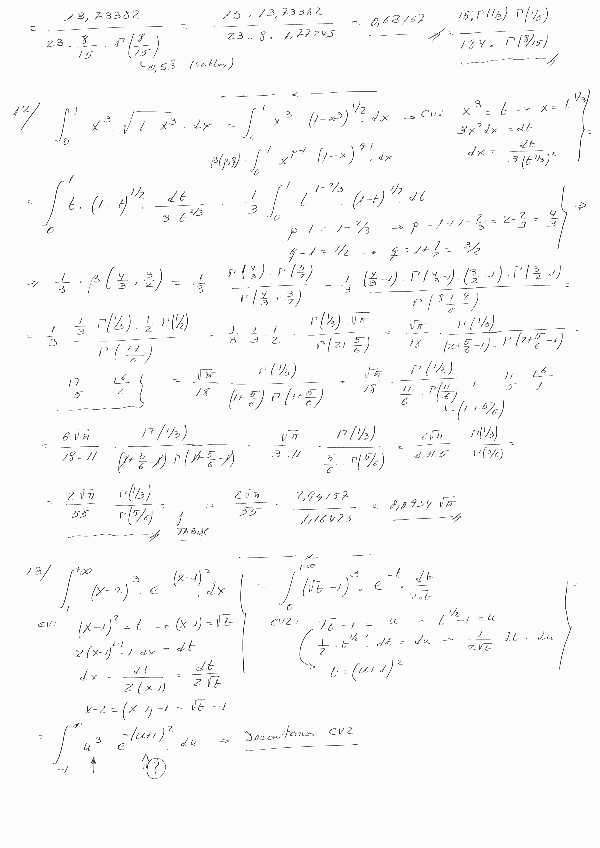 = 13,73382 / (23 · 8/15 · Γ(8/15)) = 15 · 13,73382 / (23 · 8 · 1,77245) = 0,63162 15 · Γ(1/3) · Γ(1/5) / (184 · Γ(8/15))
0,53
12/ ∫₀¹ x³ · √(1 - x³) · dx = ∫₀¹ x³ · (1-x³)^(1/2) · dx → CV: x³ = t → x = t^(1/3)
3x² dx = dt
β(p,q) = ∫₀¹ x^(p-1) · (1-x)^(q-1) · dx dx = dt / (3(t^(1/3))²)
= ∫₀¹ t · (1-t)^(1/2) · dt / (3 t^(2/3)) = 1/3 ∫₀¹ t^(1-2/3) · (1-t)^(1/2) · dt
p-1 = 1-2/3 → p = 1+1-2/3 = 2-2/3 = 4/3 ⇒
q-1 = 1/2 → q = 1+1/2 = 3/2
⇒ 1/3 · β(4/3, 3/2) = 1/3 · Γ(4/3) · Γ(3/2) / Γ(4/3 + 3/2) = 1/3 · (4/3-1) · Γ(4/3-1) · (3/2-1) · Γ(3/2-1) / Γ((8+9)/6) =
= 1/3 · 1/3 · Γ(1/3) · 1/2 · Γ(1/2) / Γ(17/6) = 1/3 · 1/3 · 1/2 · Γ(1/3) · √π / Γ(2+5/6) = √π/18 · Γ(1/3) / ((2+5/6-1) · Γ(2+5/6-1)) =
17 | 6
5 = √π/18 · Γ(1/3) / ((1+5/6) Γ(1+5/6)) = √π/18 · Γ(1/3) / (11/6 · Γ(11/6)) ; 11 | 6
5 1
(1+5/6)
= 6√π/(18·11) · Γ(1/3) / ((1+5/6-1) Γ(1+5/6-1)) = √π/(3·11) · Γ(1/3) / (5/6 · Γ(5/6)) = Γ(1/3) / Γ(5/6) =
= 2√π/55 · Γ(1/3) / Γ(5/6) = 2√π/55 · = 0,0934 √π
13/ ∫₁^(+∞) (x-2)³ · e^(-(x-1)²) · dx = ∫₀^(+∞) (√t - 1)³ · e^(-t) · dt / (2√t) =
CV: (x-1)² = t → (x-1) = √t CV2: √t - 1 = u → t^(1/2) - 1 = u
2(x-1) · 1 dx = dt 1/2 · t^(-1/2) · dt = du → 1/(2√t) dt = du
dx = dt / (2(x-1)) = dt / (2√t) t = (u+1)²
x-2 = (x-1)-1 = √t - 1
= ∫₋₁^∞ u³ e^(-(u+1)²) · du ⇒ CV2
↑ ?